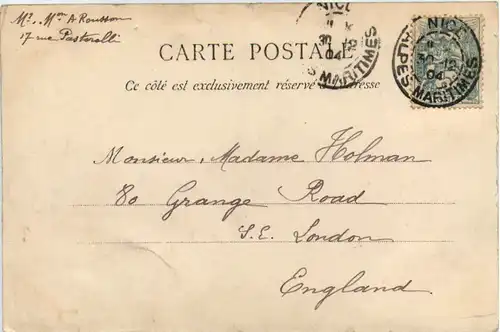 Mr. Mme A Rousson
17 rue Pastorelli
CARTE POSTALE
Ce côté est exclusivement réservé à l'adresse
NICE
30
04
MARITIMES
NICE
30 12
04
ALPES-MARITIMES
Monsieur, Madame Holman
80 Grange Road
S.E. London
England